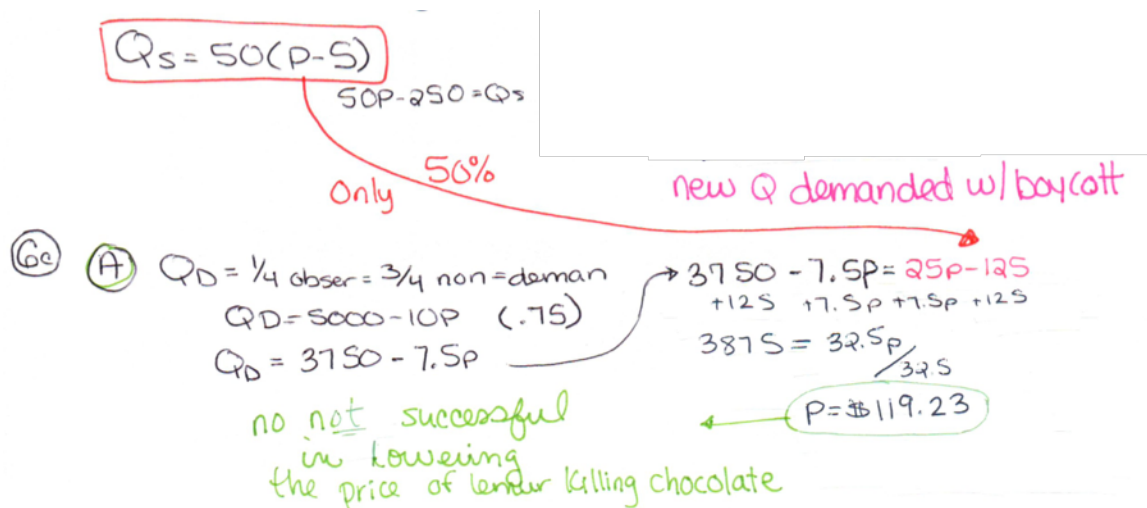 Qs = 50(P-5)
50P-250 = Qs
Only 50%
new Q demanded w/boycott
6c A QD = 1/4 obser = 3/4 non = deman
QD = 5000-10P (.75)
QD = 3750 - 7.5p
3750 - 7.5P = 25p-125
+125 +7.5p +7.5p +125
3875 = 32.5p
/32.5
P = $119.23
no not successful
in lowering
the price of lemur killing chocolate